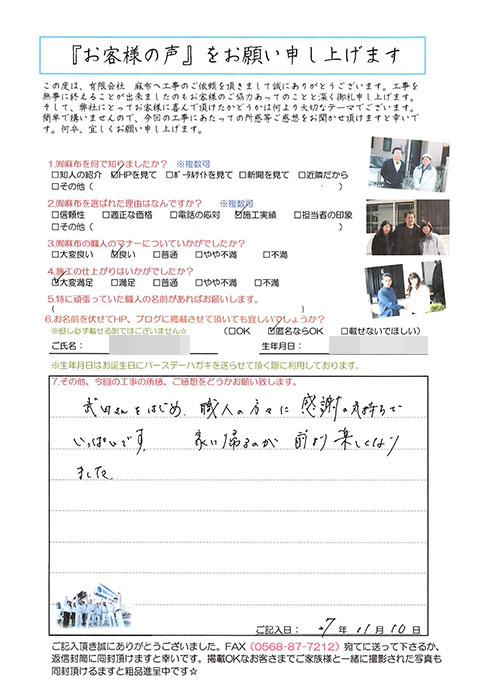 『お客様の声』をお願い申し上げます
この度は、有限会社　麻布へ工事のご依頼を頂きまして誠にありがとうございます。工事を
無事に終えることが出来ましたのもお客様のご協力あってのことと深く御礼申し上げます。
そして、弊社にとってお客様に喜んで頂けたかどうかは何より大切なテーマでございます。
簡単で構いませんので、今回の工事にあたっての所感等ご感想をお聞かせ頂けますと幸いで
す。何卒、宜しくお願い申し上げます。
1.㈲麻布を何で知りましたか？　※複数可
□知人の紹介　☑HPを見て　□ﾎﾟｰﾀﾙｻｲﾄを見て　□新聞を見て　□近隣だから
□その他（　　　）
2.㈲麻布を選ばれた理由はなんですか？　※複数可
□信頼性　□適正な価格　□電話の応対　☑施工実績　□担当者の印象
□その他（　　　）
3.㈲麻布の職人のマナーについていかがでしたか？
□大変良い　☑良い　□普通　□やや不満　□不満
4.施工の仕上がりはいかがでしたか？
☑大変満足　□満足　□普通　□やや不満　□不満
5.特に頑張っていた職人の名前があればお願いします。
（　　　）
6.お名前を伏せてHP、ブログに掲載させて頂いても宜しいでしょうか？
※但し必ず載せる訳ではございません☆　（□OK　☑匿名ならOK　□載せないでほしい）
ご氏名：　生年月日：
※生年月日はお誕生日にバースデーハガキを送らせて頂く際に利用しております。
7.その他、今回の工事の所感、ご感想をどうかお願い致します。
武田さんをはじめ、職人の方々に感謝の気持ちで
いっぱいです。　家に帰るのが前より楽しくなり
ました。
ご記入日：　27年 11月 10日
ご記入頂き誠にありがとうございました。FAX（0568-87-7212）宛てに送って下さるか、
返信封筒に同封頂けますと幸いです。掲載OKなお客さまでご家族様と一緒に撮影された写真も
同封頂けるますと粗品進呈中です☆